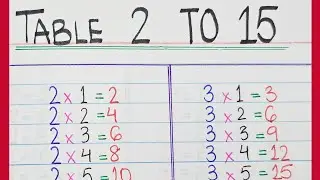 TABLE 2 TO 15
2 x 1 = 2
2 x 2 = 4
2 x 3 = 6
2 x 4 = 8
2 x 5 = 10
3 x 1 = 3
3 x 2 = 6
3 x 3 = 9
3 x 4 = 12
3 x 5 = 15